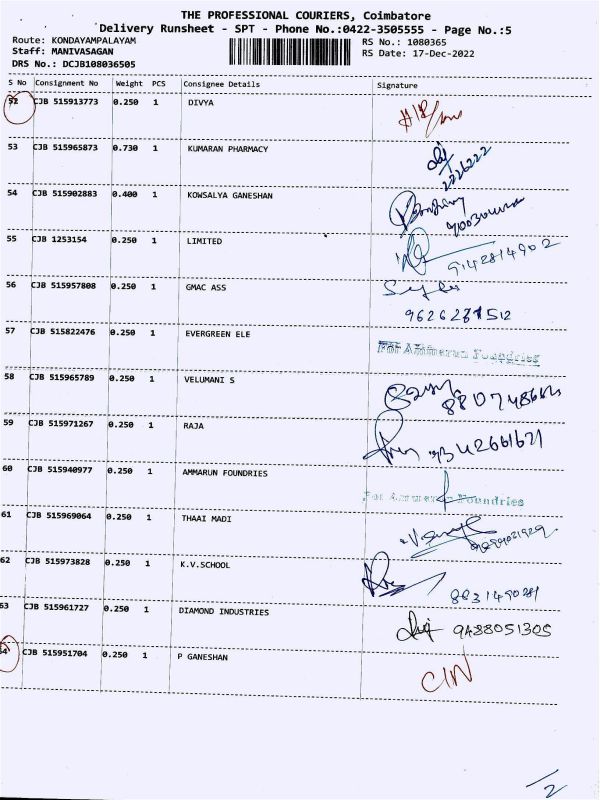 THE PROFESSIONAL COURIERS, Coimbatore
Delivery Runsheet - SPT - Phone No.:0422-3505555 - Page No.:5
Route: KONDAYAMPALAYAM
RS No.: 1080365
Staff: MANIVASAGAN
RS Date: 17-Dec-2022
DRS No.: DCJB108036505
S No Consignment No Weight PCS Consignee Details Signature
52 CJB 515913773 0.250 1 DIVYA
53 CJB 515965873 0.730 1 KUMARAN PHARMACY
54 CJB 515902883 0.400 1 KOWSALYA GANESHAN
55 CJB 1253154 0.250 1 LIMITED
9142814902
56 CJB 515957808 0.250 1 GMAC ASS
9626287512
57 CJB 515822476 0.250 1 EVERGREEN ELE
For Ammarun Foundries
58 CJB 515965789 0.250 1 VELUMANI S
59 CJB 515971267 0.250 1 RAJA
9342661671
60 CJB 515940977 0.250 1 AMMARUN FOUNDRIES
For Ammarun Foundries
61 CJB 515969064 0.250 1 THAAI MADI
62 CJB 515973828 0.250 1 K.V.SCHOOL
63 CJB 515961727 0.250 1 DIAMOND INDUSTRIES
9488051305
64 CJB 515951704 0.250 1 P GANESHAN
CIN